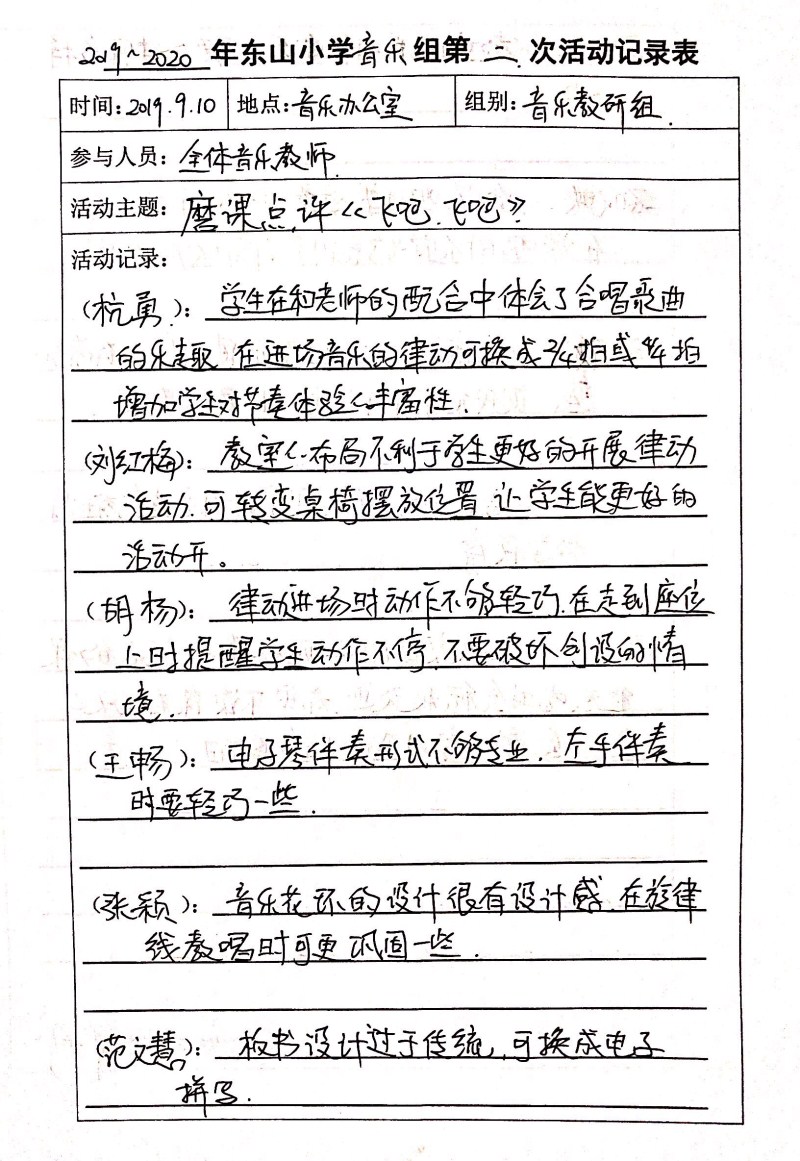 2019~2020 年东山小学音乐组第 二 次活动记录表
时间:2019.9.10 地点:音乐办公室 组别:音乐教研组.
参与人员:全体音乐教师.
活动主题: 磨课点评《飞吧、飞吧》
活动记录:
(杭勇): 学生在和老师的配合中体会了合唱歌曲
的乐趣.在进场音乐的律动可换成3/4拍或4/4拍
增加学生对节奏体验的丰富性.
(刘红梅): 教室的布局不利于学生更好的开展律动
活动.可转变桌椅摆放位置,让学生能更好的
活动开。
(胡杨): 律动进场时动作不够轻巧.在走到座位
上时提醒学生动作不停.不要破坏创设的情
境.
(王畅): 电子琴伴奏形式不够专业.左手伴奏
时要轻巧一些.
(张颖): 音乐花环的设计很有设计感.在旋律
线教唱时可更巩固一些.
(范文慧): 板书设计过于传统,可换成电子
拼写.